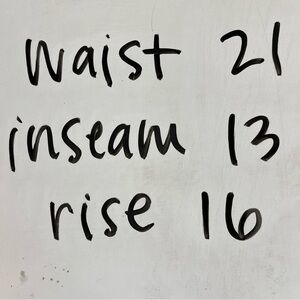 waist 21
inseam 13
rise 16